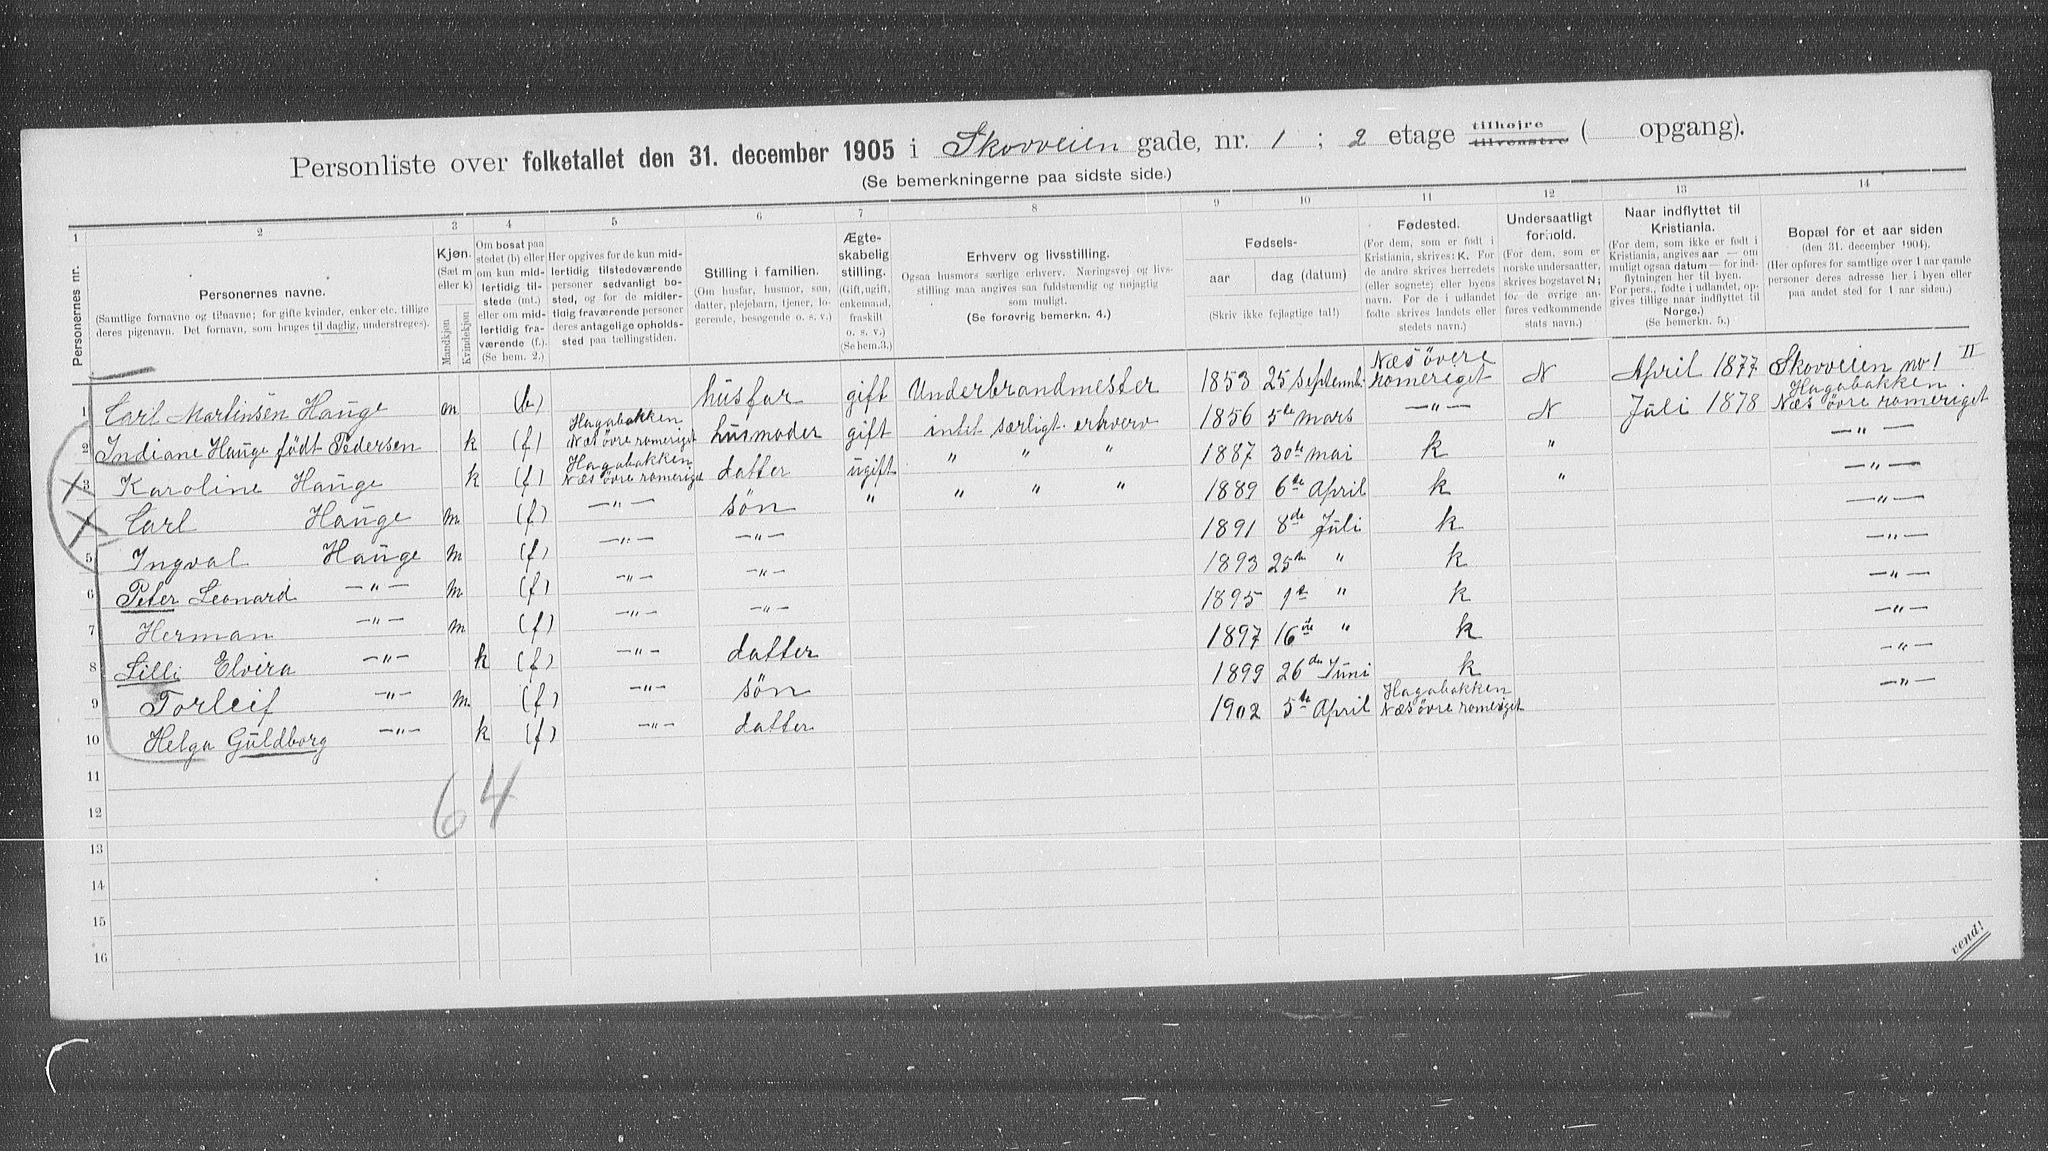 Personliste over folketallet den 31. december 1905 i Skovveien gade, nr. 1 ; 2 etage tilhøjre tilvenstre ( opgang).
(Se bemerkningerne paa sidste side.)
1 2 3 4 5 6 7 8 9 10 11 12 13 14
Personernes nr.
Personernes navne.
(Samtlige fornavne og tilnavne; for gifte kvinder, enker etc. tillige
deres pigenavn. Det fornavn, som bruges til daglig, understreges).
Kjøn.
(Sæt m
eller k)
Mandkjøn
Kvindekjøn
Om bosat paa
stedet (b) eller
om kun mid-
lertidig til-
stede (mt.)
eller om mid-
lertidig fra-
værende (f.).
(Se bem. 2.)
Her opgives for de kun mid-
lertidig tilstedeværende
personer sedvanligt bo-
sted, og for de midler-
tidig fraværende personer
deres antagelige opholds-
sted paa tællingstiden.
Stilling i familien.
(Om husfar, husmor, søn,
datter, plejebarn, tjener, lo-
gerende, besøgende o. s. v.)
Ægte-
skabelig
stilling.
(Gift, ugift,
enkemand,
fraskilt
o. s. v.)
(Se bem.3.)
Erhverv og livsstilling.
Ogsaa husmors særlige erhverv. Næringsvej og livs-
stilling maa angives saa fuldstændig og nøjagtig
som muligt.
(Se forøvrig bemerkn. 4.)
Fødsels-
aar dag (datum)
(Skriv ikke fejlagtige tal!)
Fødested.
(For dem, som er født i
Kristiania, skrives: K. For
de andre skrives herredets
(eller sognets) eller byens
navn. For de i udlandet
fødte skrives landets eller
stedets navn.)
Undersaatligt
forhold.
(For dem, som er
norske undersaatter,
skrives bogstavet N;
for de øvrige an-
føres vedkommende
stats navn.)
Naar indflyttet til
Kristiania.
(For dem, som ikke er født i
Kristiania, angives aar — om
muligt ogsaa datum — for ind-
flytningen her til byen.
For pers., fødte i udlandet, op-
gives tillige naar indflyttet til
Norge.)
(Se bemerkn. 5.)
Bopæl for et aar siden
(den 31. december 1904).
(Her opføres for samtlige over 1 aar gamle
personer deres adresse her i byen eller
paa andet sted for 1 aar siden.)
1 Carl Martinsen Hauge m (b) husfar gift Underbrandmester 1853 25 Septemb. Næs øvre romeriget N April 1877 Skovveien no 1 II
2 Indiane Hauge født Pedersen k (f) Hagabakken Næs øvre romeriget husmoder gift intet særligt erhverv 1856 5te mars —"— N Juli 1878 Hagabakken Næs øvre romeriget
3 Karoline Hauge k (f) Hagabakken Næs øvre romeriget datter ugift " " " 1887 30te mai k " —"—
Carl Hauge m (f) —"— søn " " " " 1889 6te April k " —"—
5 Ingval Hauge m (f) —"— —"— 1891 8de Juli k —"—
6 Peter Leonard —"— m (f) —"— —"— 1893 25te " k —"—
7 Herman —"— m (f) —"— —"— 1895 1ste " k —"—
8 Lilli Elvira —"— k (f) —"— datter 1897 16de " k —"—
9 Torleif —"— m (f) —"— søn 1899 26de Juni k —"—
10 Helga Guldborg —"— k (f) —"— datter 1902 5te April Hagabakken Næs øvre romeriget —"—
11
64
12
13
14
15
16
vend!